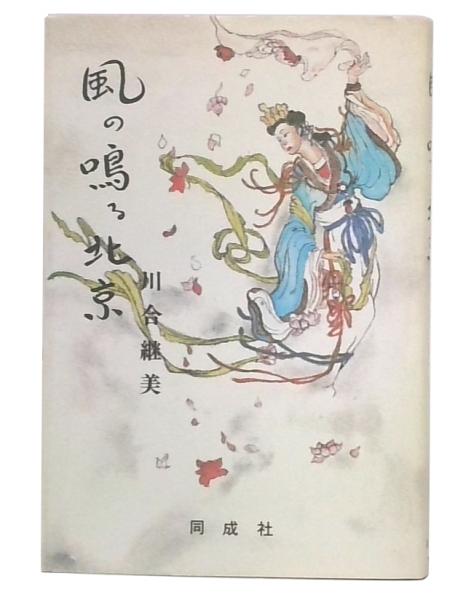 風の鳴る北京
川合継美
同成社